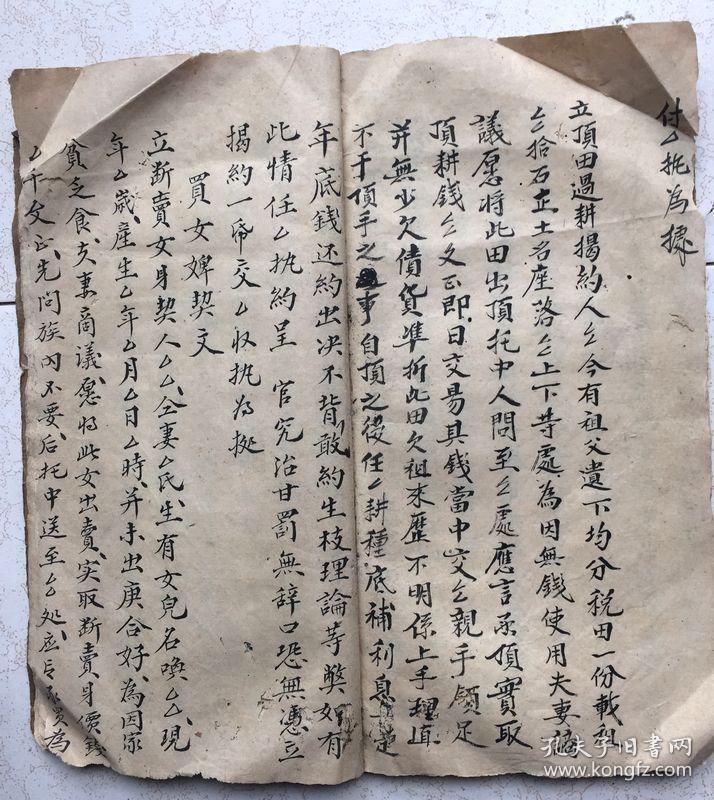 付厶执為據
立頂田過耕揭約人厶今有祖父遺下均分税田一份載租
厶拾石正土名座落厶上下等處為因無錢使用夫妻
議愿将此田出頂托中人問至厶處應言承頂實取
頂耕錢厶文正即日交易其錢當中交厶親手領足
并無少欠債貨準折此田欠租来歷不明係上手理直
不干頂手之事自頂之後任厶耕種底補利息
年底錢还約出决不背敢約生枝理論等獘如有
此情任厶执約呈 官究治甘罰無辞口恐無憑立
揭約一帋交厶收执為挺
買女婢契文
立断賣女身契人厶厶仝妻厶氏生有女兒名喚厶厶現
年厶歲産生厶年厶月厶日厶時并未出庚合好為因家
貧乏食夫妻商议愿将此女出賣实取断賣身價錢
厶千文正先问族内不要后托中送至厶处应言承買為
孔夫子旧书网
www.kongfz.com